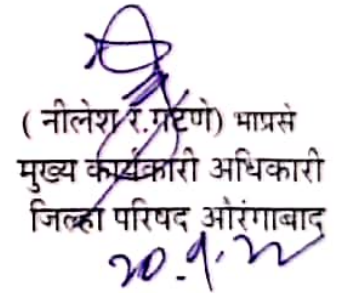 ( नीलेश र.गटणे) भाप्रसे
मुख्य कार्यकारी अधिकारी
जिल्हा परिषद औरंगाबाद